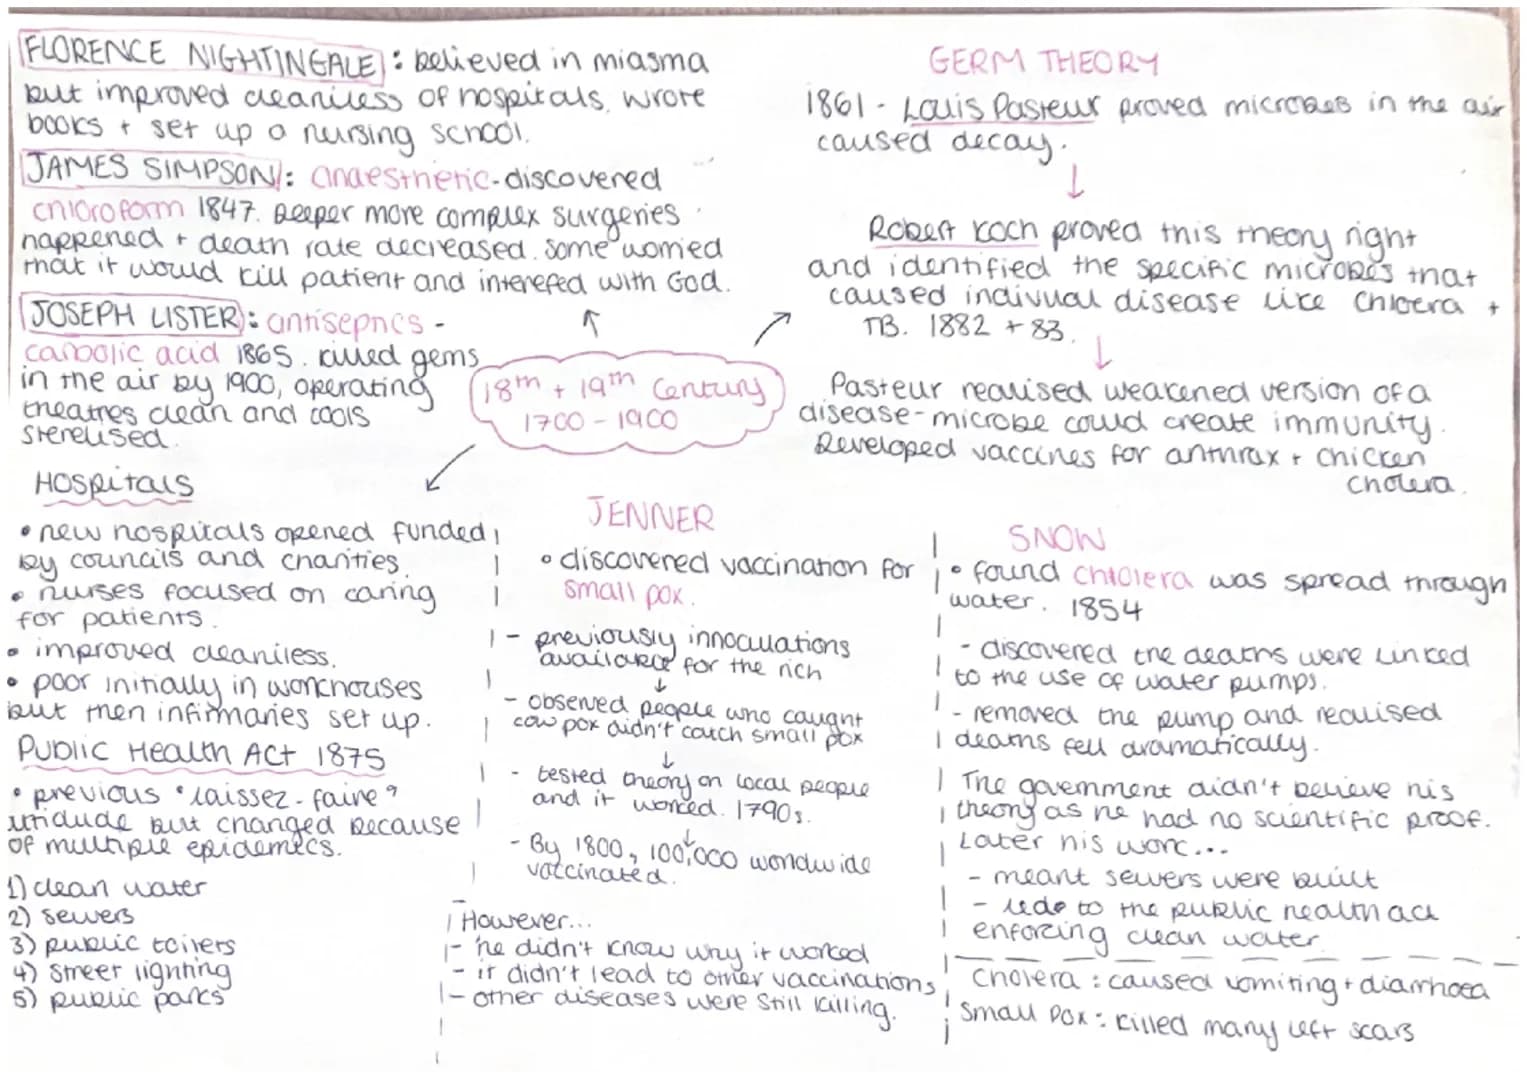 FLORENCE NIGHTINGALE: believed in miasma
but improved cleaniless of hospitals. wrote
books + set up a nursing school.
JAMES SIMPSON: anaesthetic-discovered
chloroform 1847. Deeper more complex surgeries
happened + death rate decreased. some worried
that it would kill patient and interefed with God.
JOSEPH LISTER: antiseptics -
carbolic acid 1865. killed gems
in the air by 1900, operating
theatres clean and tools
sterelised.
18th + 19th Century
1700 - 1900
GERM THEORY
1861 - Louis Pasteur proved microbes in the air
caused decay.
↓
Robert Koch proved this theory right
and identified the specific microbes that
caused indivual disease like Chloera +
TB. 1882 + 83.
↓
Pasteur realised weakened version of a
disease-microbe could create immunity.
Developed vaccines for anthrax + chicken
cholera.
Hospitals
• new hospitals opened funded
by councils and charities.
• nurses focused on caring
for patients.
• improved cleaniless.
• poor initially in workhouses
but then infirmaries set up.
Public Health Act 1875
• previous "laissez-faire"
but changed because
of multiple epidemics.
1) clean water
2) sewers
3) public toilets
4) street lighting
5) public parks
JENNER
• discovered vaccination for
small pox.
- previously innoculations
available for the rich
↓
- observed people who caught
cow pox didn't catch small pox
↓
- tested theory on local people
and it worked. 1790s.
↓
- By 1800, 100,000 worldwide
vaccinated.
However...
- he didn't know why it worked
- it didn't lead to other vaccinations
- other diseases were still killing.
SNOW
• found cholera was spread through
water. 1854
- discovered the deaths were linked
to the use of water pumps.
- removed the pump and realised
deaths fell dramatically.
The government didn't believe his
theory as he had no scientific proof.
Later his work...
- meant sewers were built
- lede to the public health act
enforcing clean water.
Cholera : caused vomiting + diarrhoea
small pox : killed many left scars